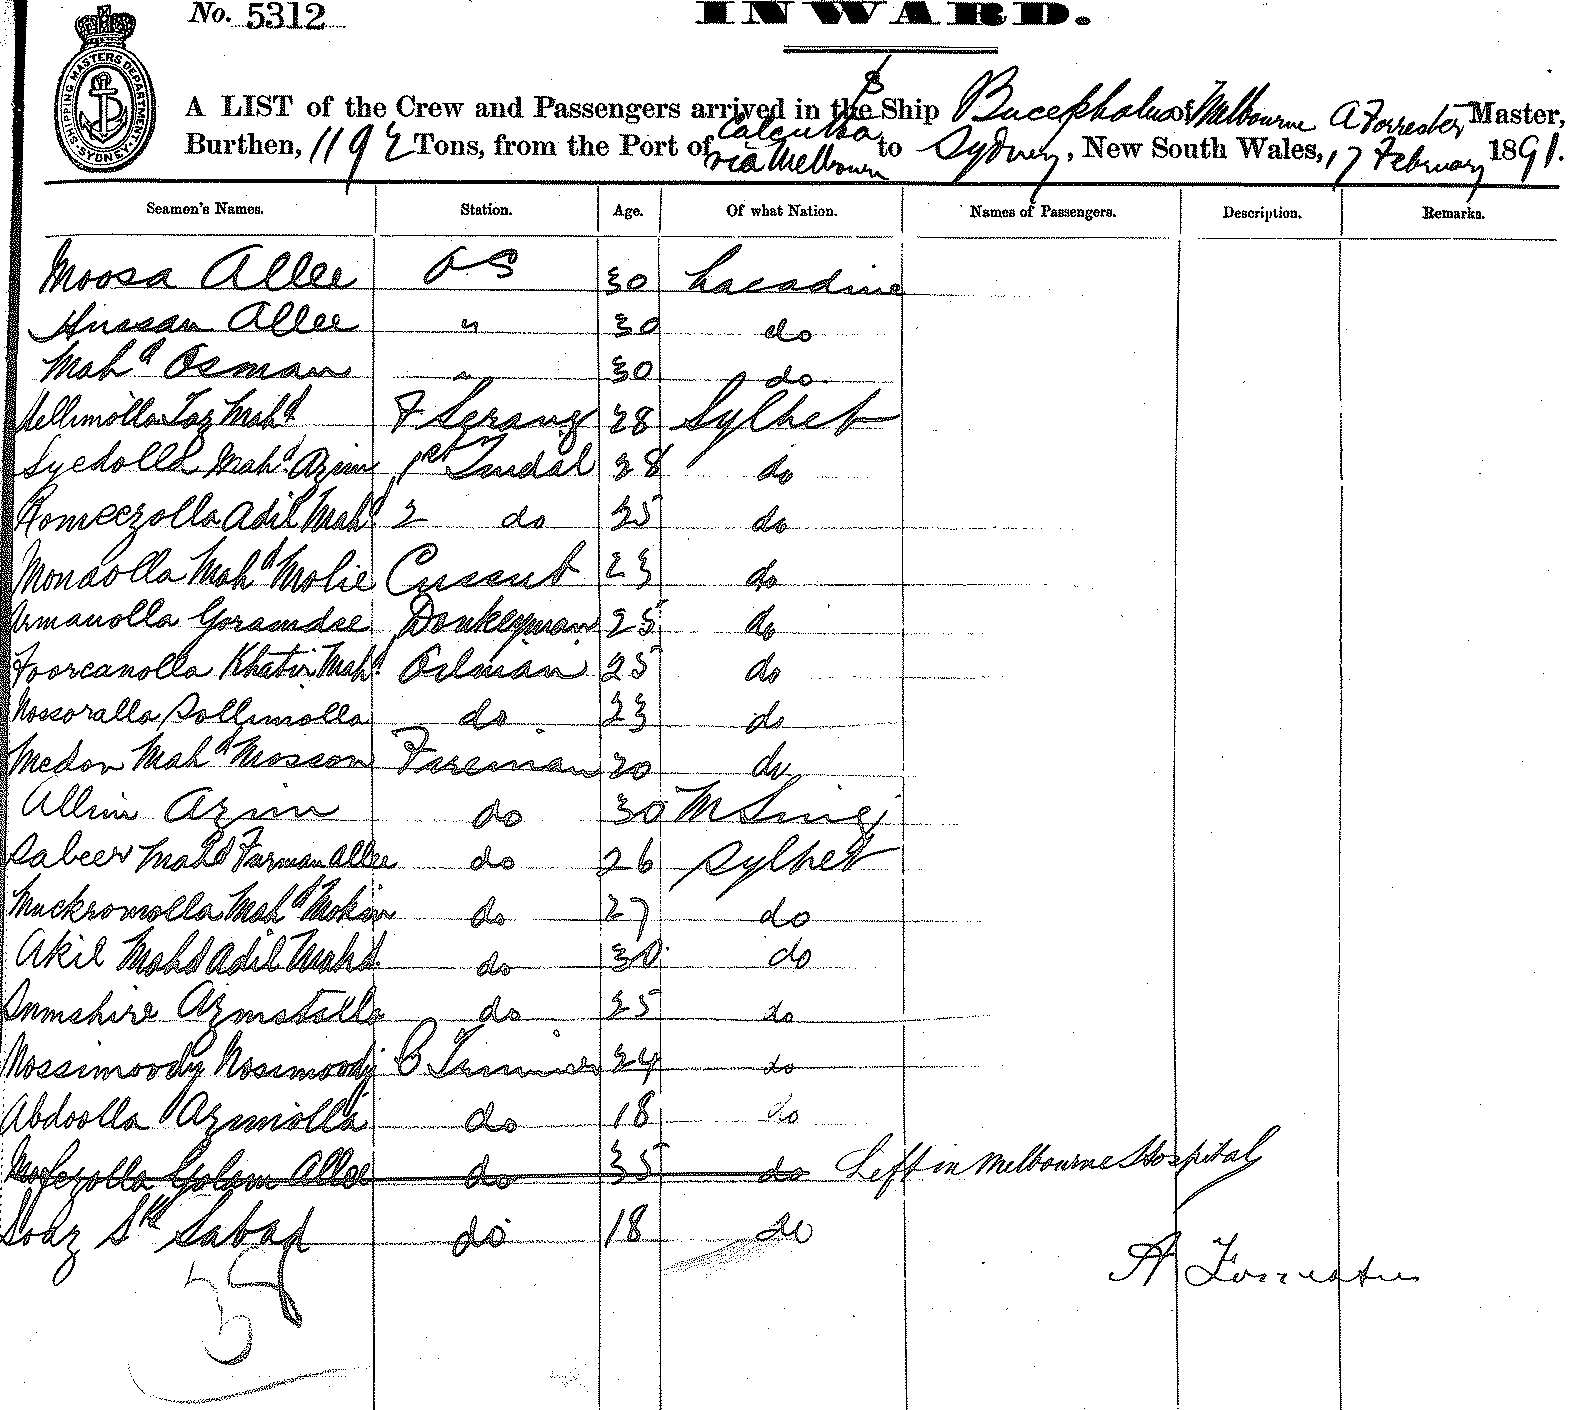 No. 5312
INWARD.
SHIPPING MASTERS DEPARTMENT SYDNEY
A LIST of the Crew and Passengers arrived in the S Ship Bucephalus of Melbourne A Forrester Master,
Burthen, 1192 Tons, from the Port of Calcutta via Melbourne to Sydney, New South Wales, 17 February 1891.
Seamen's Names. Station. Age. Of what Nation. Names of Passengers. Description. Remarks.
Moosa Allee O S 30 Lacadine
Hussan Allee " 30 do
Mahd Osman " 30 do
Taz Mahd F Serang 28 Sylhet
Syedolla Mahd Azim 1st Tindal 28 do
Romeezolla Adil Mahd 2 do 25 do
Monaolla Mahd Molie Cussub 23 do
Armanolla Goramdee Donkeyman 25 do
Foorcanolla Khatir Mahd Oilman 25 do
Nossoralla Sollimolla do 23 do
Medon Mahd Mosson Fireman 20 do
Allim Azim do 30 M Sing
Sabeer Mahd Furman Allee do 26 Sylhet
Muckromolla Mahd Mokim do 27 do
Akil Mahd Adil Mahd do 30 do
Summshire Azmotolla do 25 do
Nossimoody Nosimoody C Trimmer 24 do
Abdoolla Azmolla do 18 do
Mofezolla Golam Allee do 35 do Left in Melbourne Hospital
Soaz Sk Sabad do 18 do
A Forrester